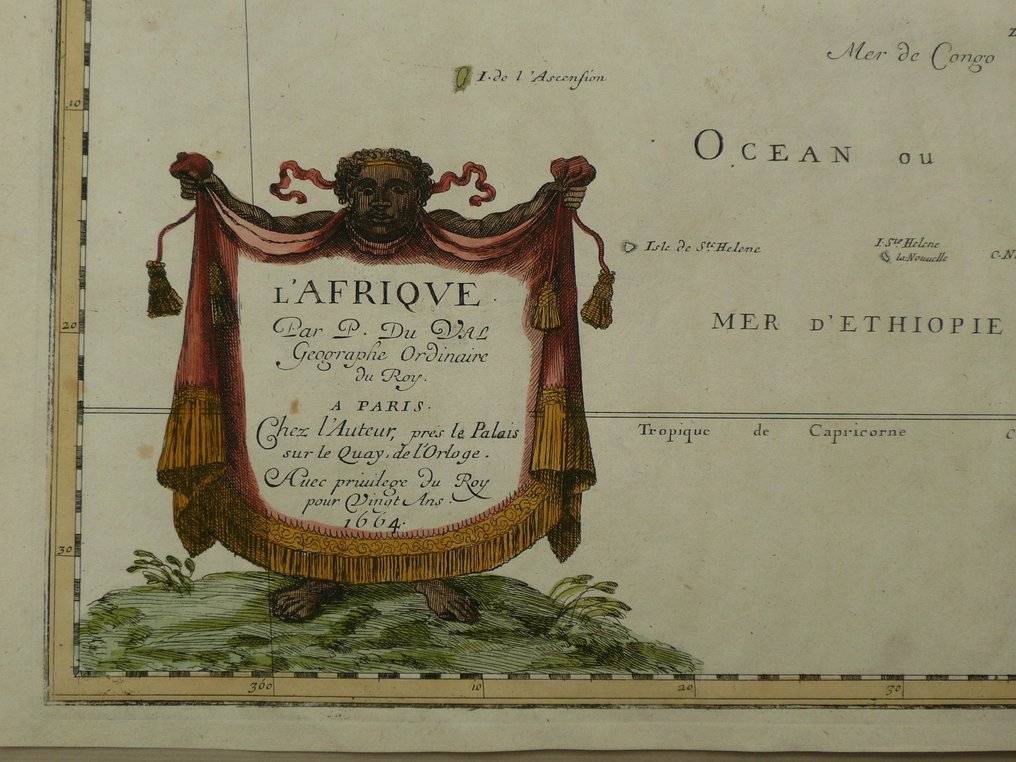 Mer de Congo
I. de l'Ascension
OCEAN ou
Isle de Ste Helene
I. Ste Helene
la Nouuelle
MER D'ETHIOPIE
L'AFRIQVE.
Par P. Du VAL
Geographe Ordinaire
du Roy.
A PARIS.
Chez l'Auteur, prés le Palais
sur le Quay, de l'Orloge.
Auec privilege du Roy
pour Vingt Ans.
1664.
Tropique de Capricorne
10
20
30
360
10
20
30